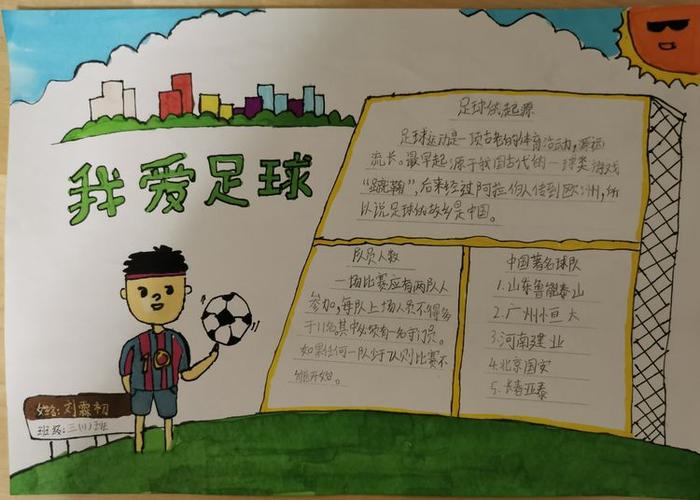 我爱足球
足球的起源
足球运动是一项古老的体育活动，源远
流长。最早起源于我国古代的一种球类游戏
“蹴鞠”，后来经过阿拉伯人传到欧洲，所
以说足球的故乡是中国。
队员人数
一场比赛应有两队人
参加，每队上场人员不得多
于11名其中必须有一名守门员。
如果任何一队少于7人则比赛不
能开始。
中国著名球队
1.山东鲁能泰山
2.广州恒大
3.河南建业
4.北京国安
5.长春亚泰
10
姓名：刘霖初
班级：三(1)班